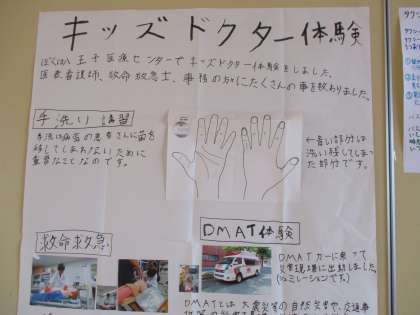 キッズドクター体験
ぼくは、王子医療センターでキッズドクター体験をしました。
医者、看護師、救命救急士、事務の方にたくさんの事を教わりました。
手洗い講習
手洗は病院の患者さんに菌を
移してしまわないために
重要なことなのです。
←青い部分は
洗い残してしまっ
た部分です。
DMAT体験
救命救急
DMATカーに乗って
災害現場に出動しました
(シミュレーションです。)
DMATとは大震災等の自然災害や、交通事